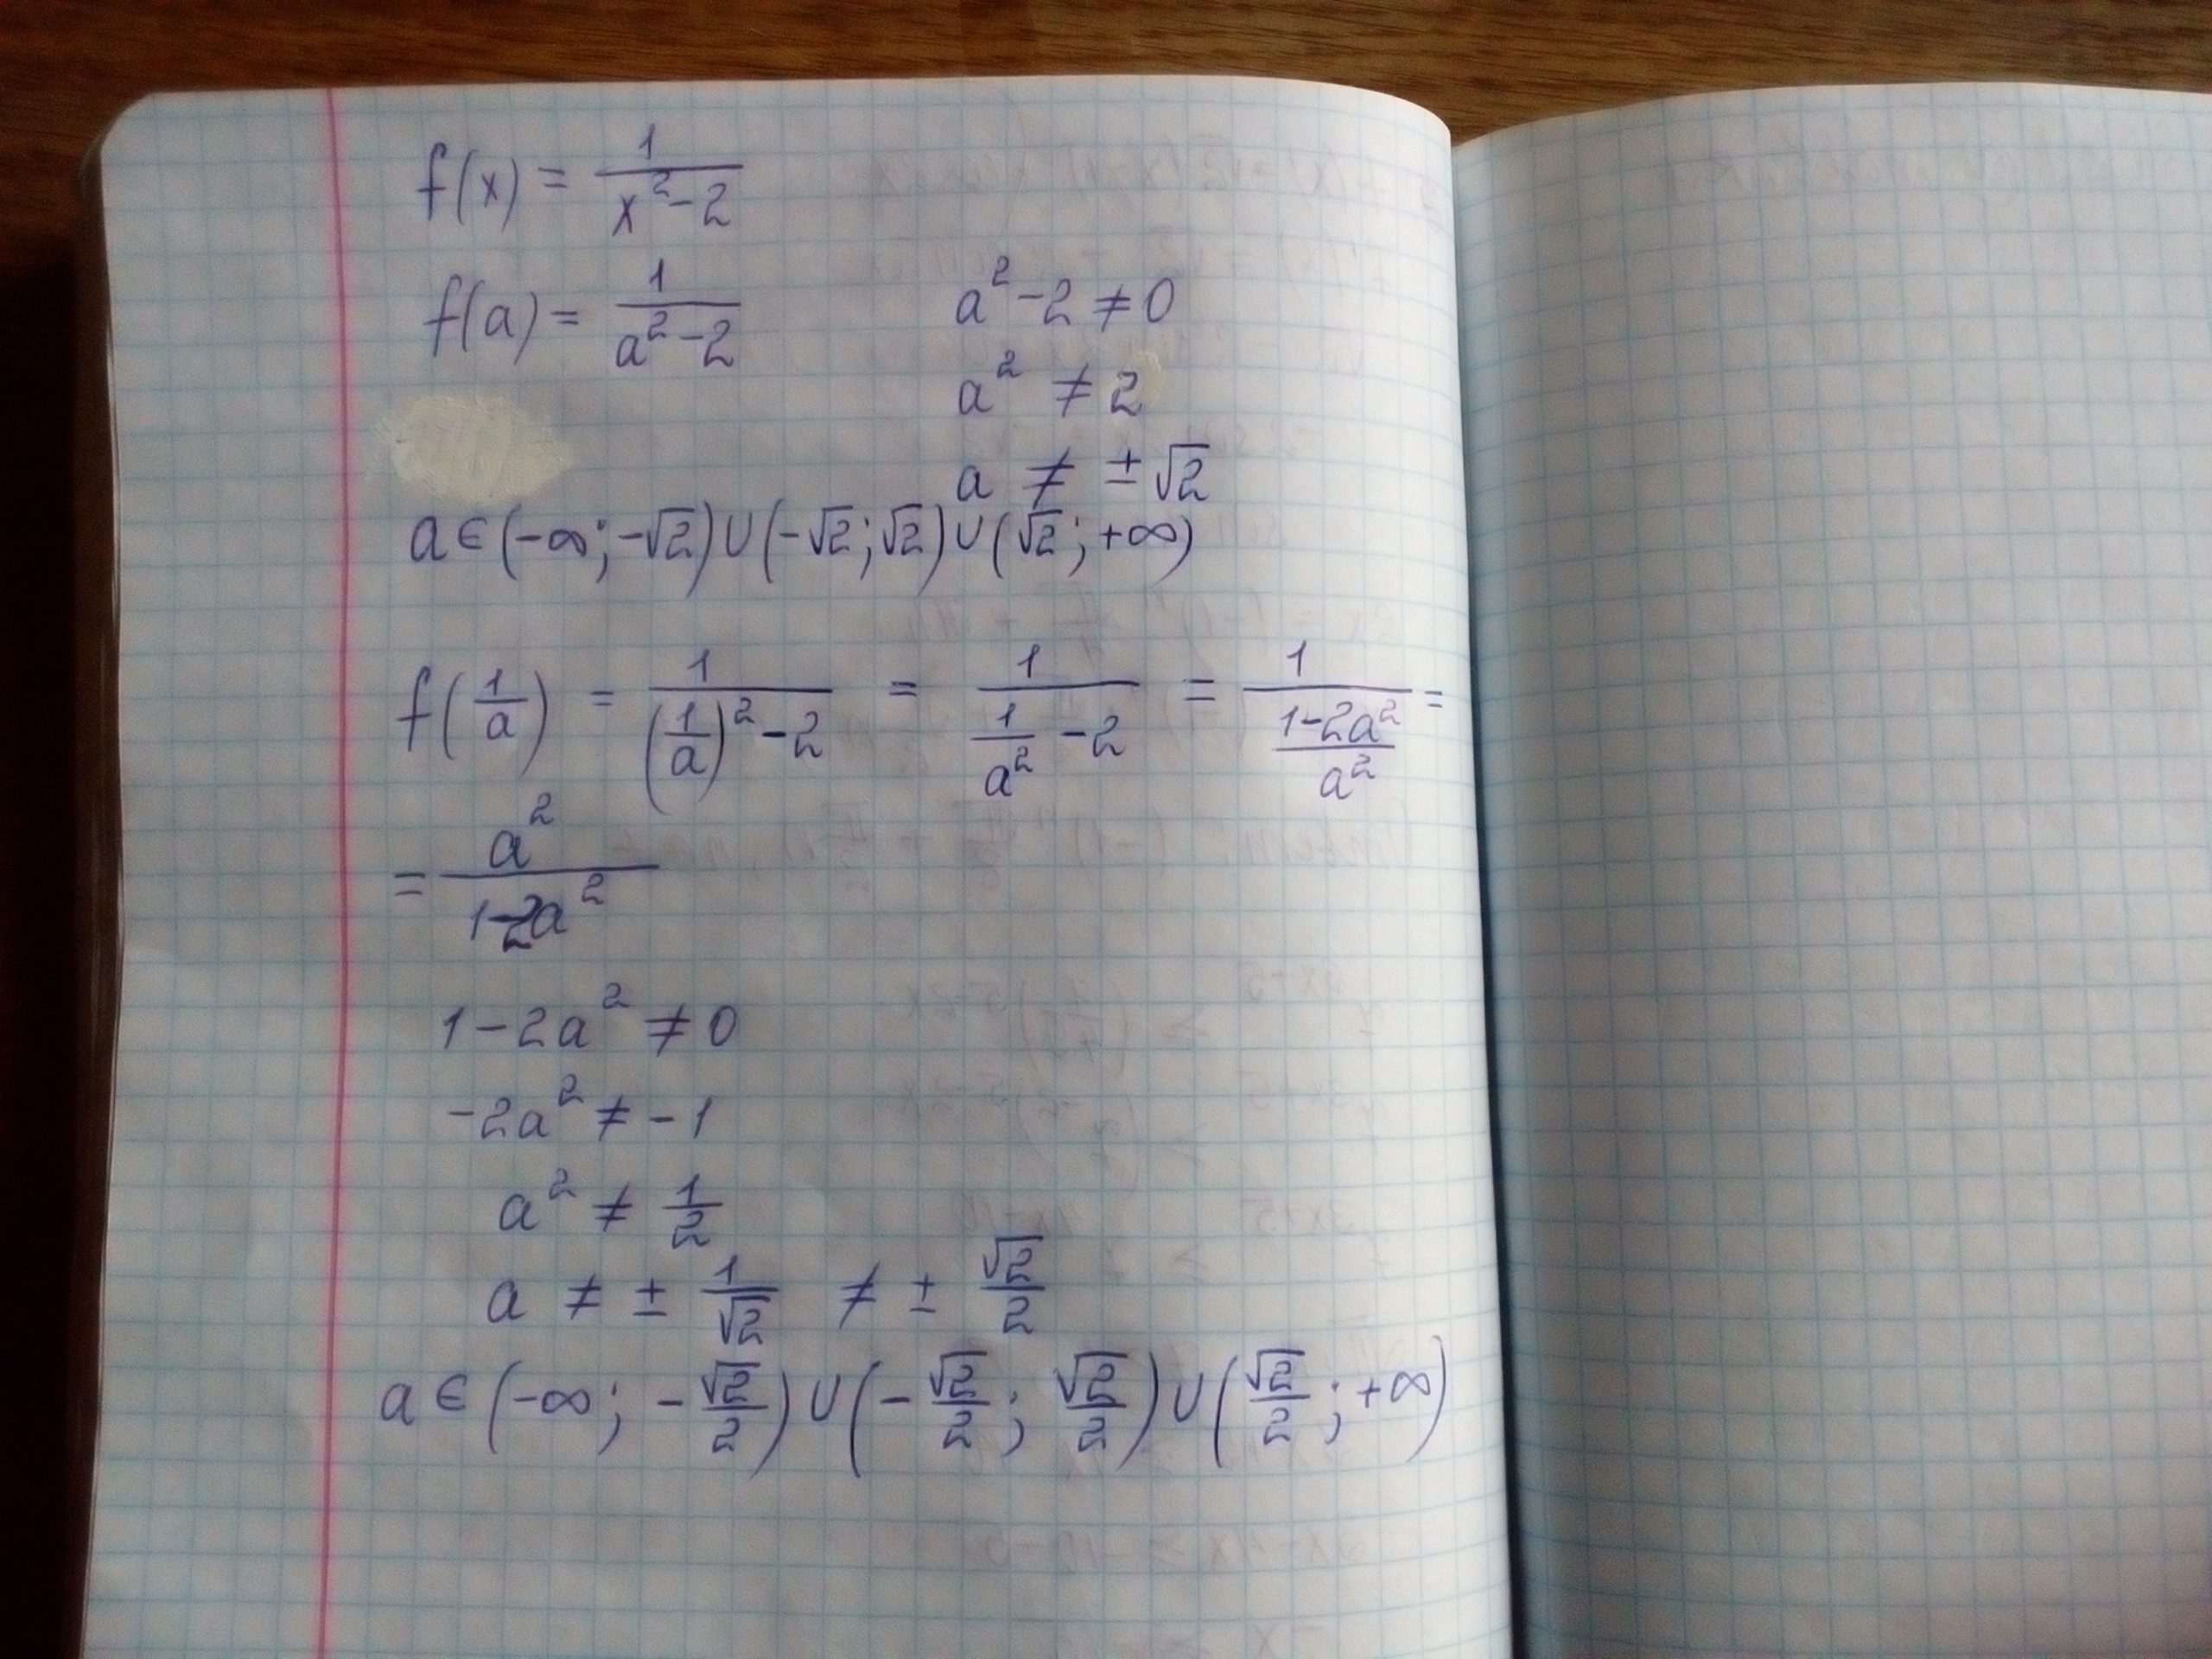 f(x) = 1/(x²-2)
f(a) = 1/(a²-2)
a²-2 ≠ 0
a² ≠ 2
a ≠ ±√2
a ∈ (-∞; -√2) ∪ (-√2; √2) ∪ (√2; +∞)
f(1/a) = 1/((1/a)²-2) = 1/(1/a² -2) = 1/((1-2a²)/a²) =
= a²/(1-2a²)
1-2a² ≠ 0
-2a² ≠ -1
a² ≠ 1/2
a ≠ ± 1/√2 ≠ ± √2/2
a ∈ (-∞; -√2/2) ∪ (-√2/2; √2/2) ∪ (√2/2; +∞)